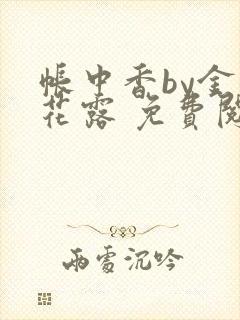 帳中香by金
花露 免費閱
雨雪沉吟